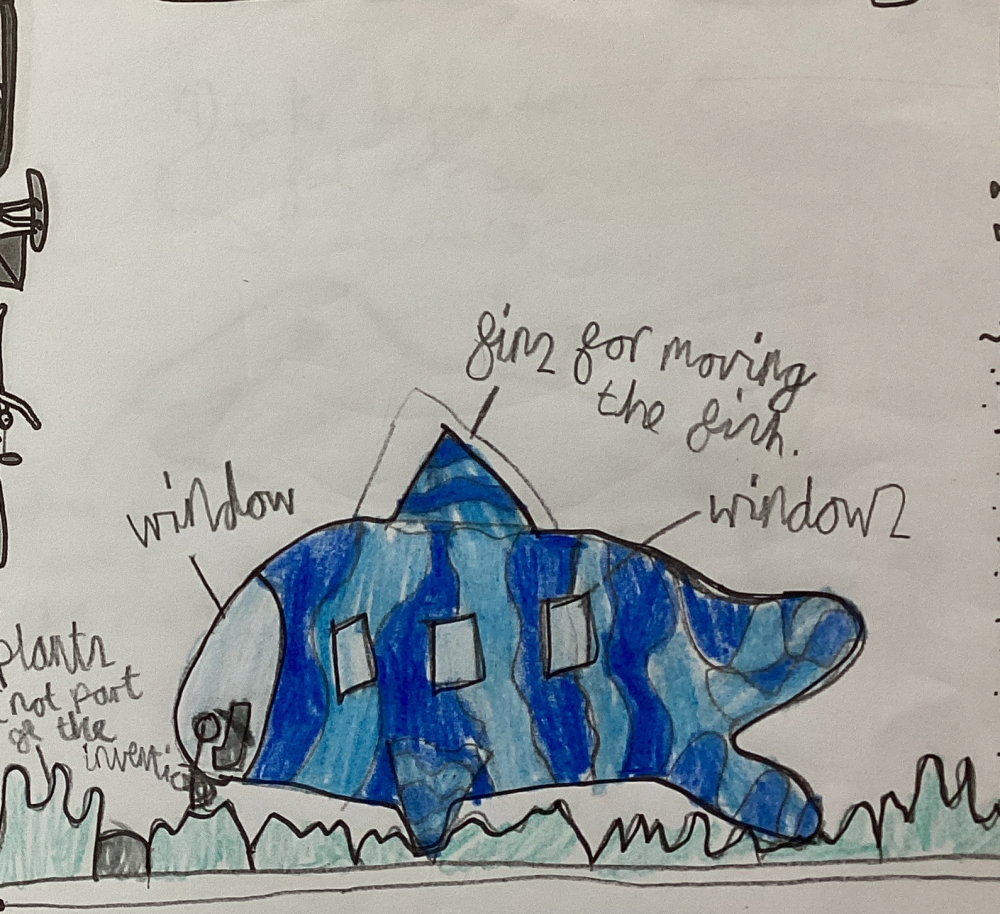 fins for moving
the fish.
window
windows
plants
not part
of the
invention